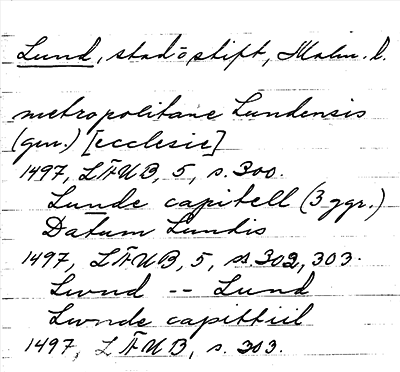 Lund, stad o stift, Malm. l.
metropolitane Lundensis
(gen.) [ecclesie]
1497, LÄUB, 5, s. 300.
Lunde capitell (3 ggr.)
Datum Lundis
1497, LÄUB, 5, ss 302, 303.
Lwnd -- Lund
Lwnde capittiil
1497, LÄUB, s. 303.